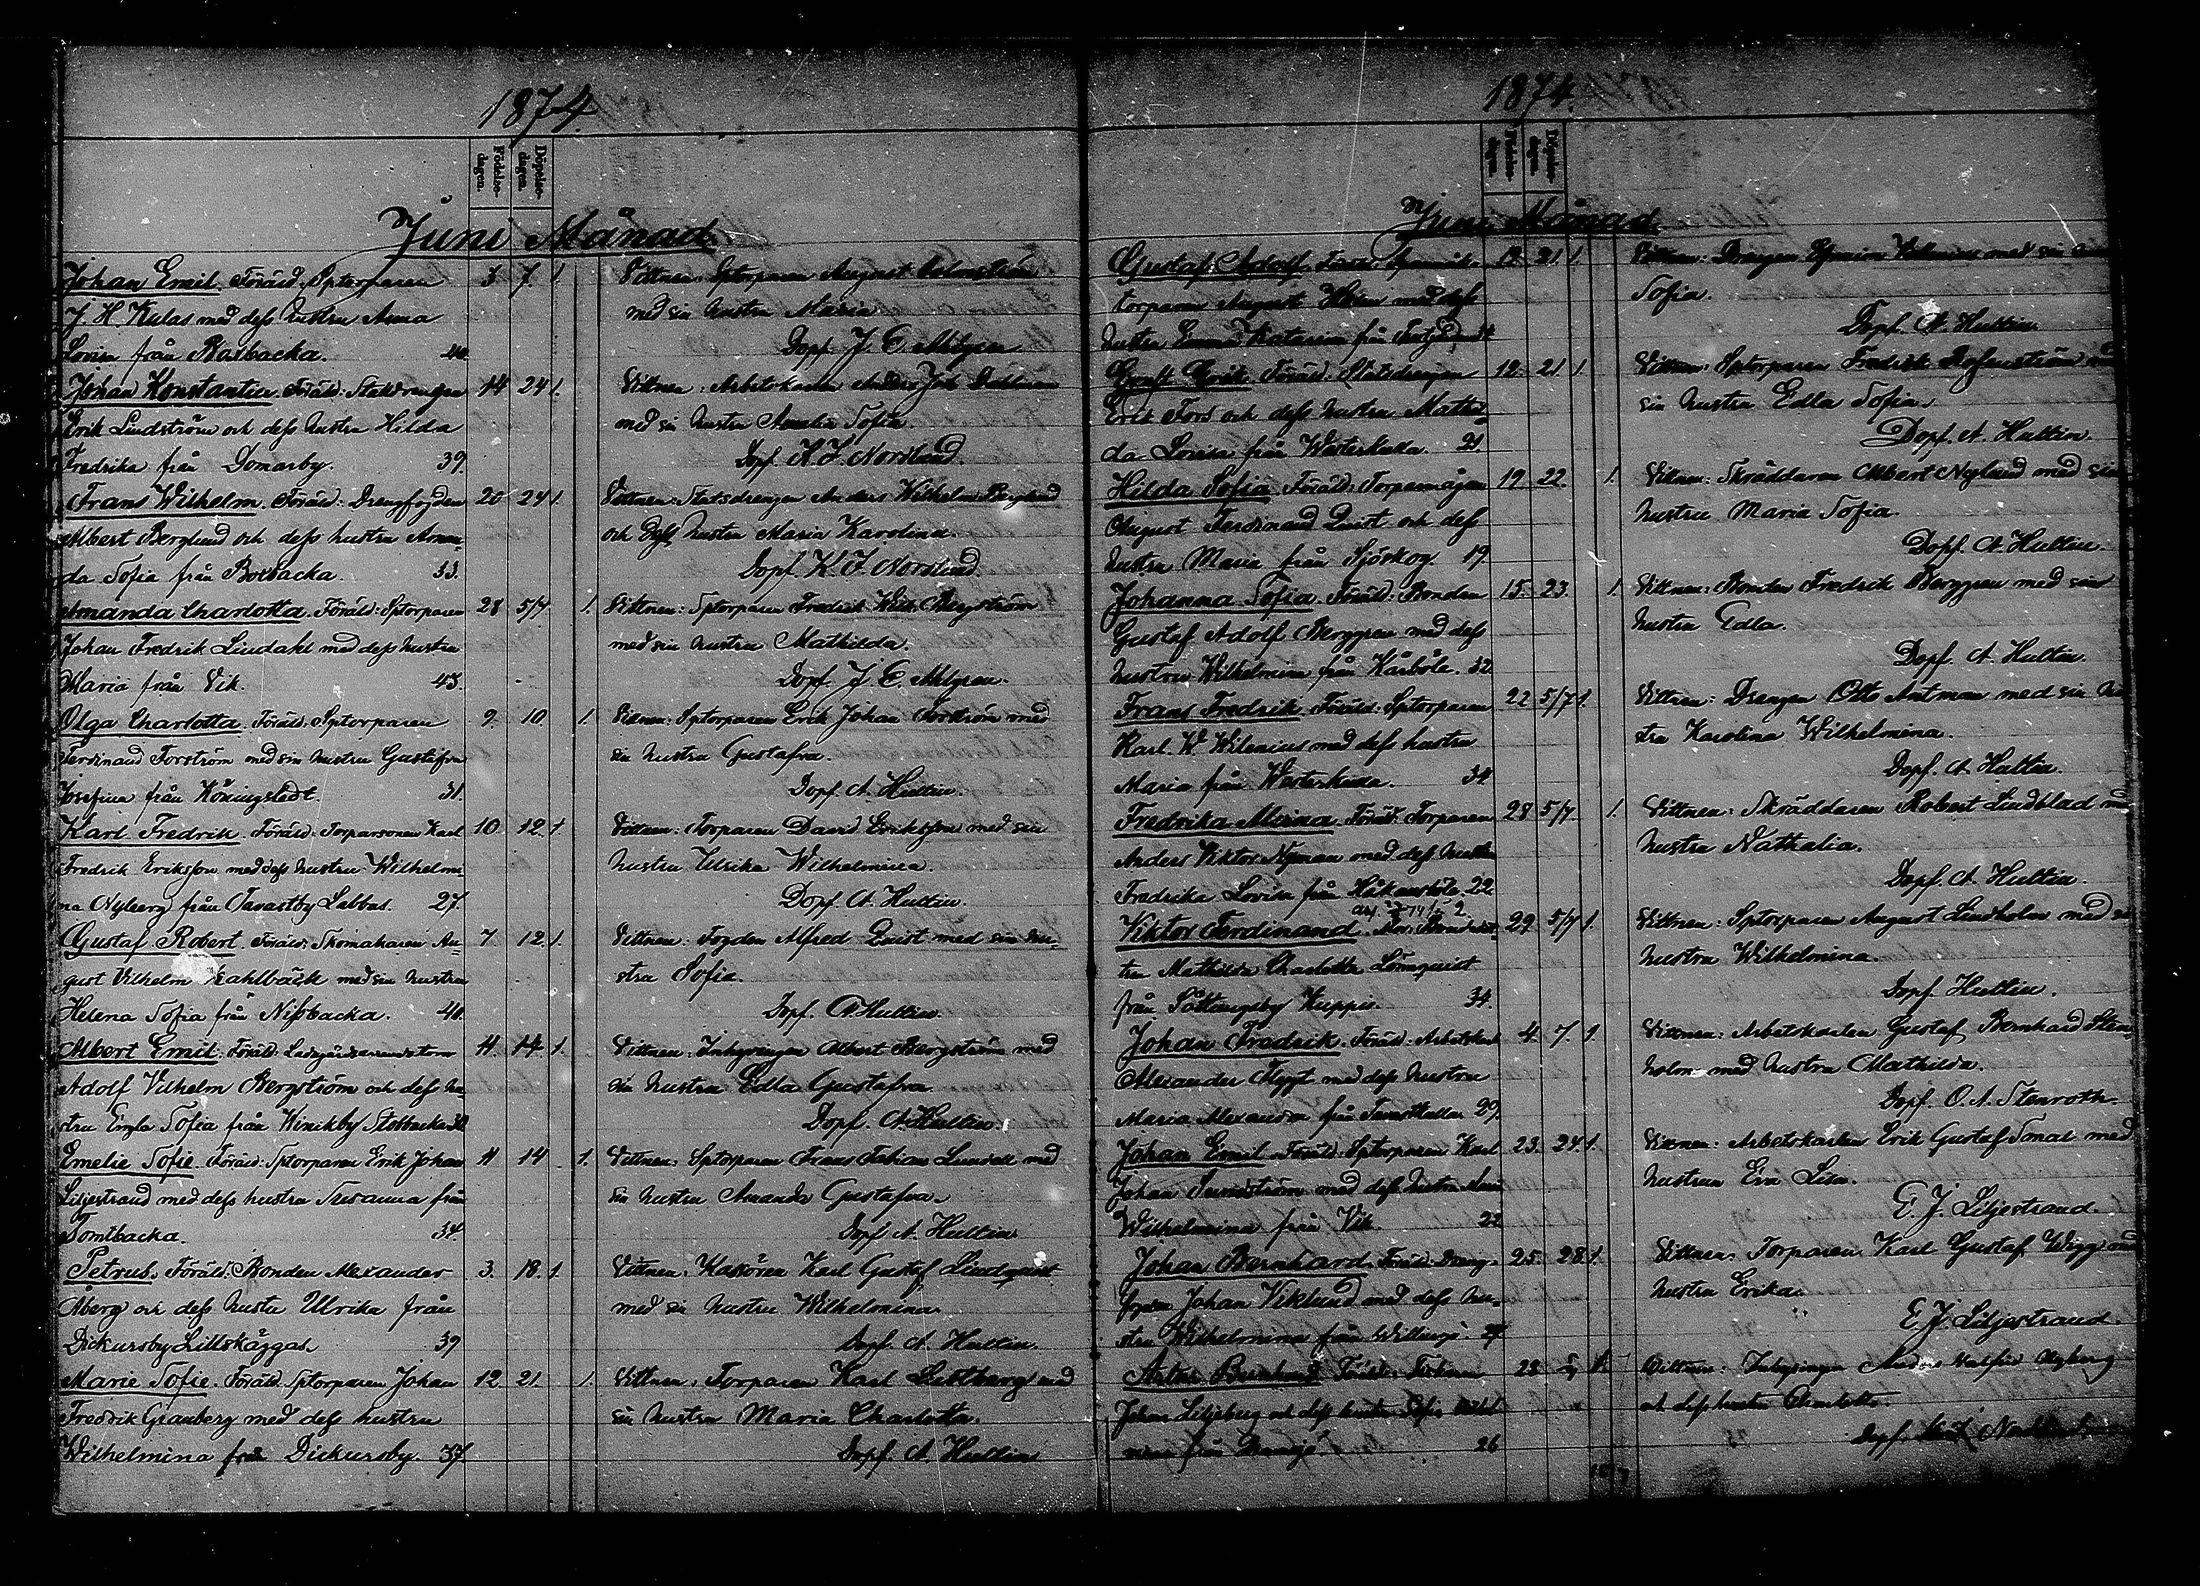 1874.
Födelse-dagen.
Döpelse-dagen.
Juni Månad.
Johan Emil. Föräld: Sptorparen 3 7. 1.
J. H. Kulas med dess hustru Anna
Lovisa från Rasbacka. 40.
Vittnen: Sptorparen August Holmström
med sin hustru Maria
Döpf. J. E. Ahlgren
Johan Konstantin. Föräld: Statdrengen 14 24 1.
Erik Lindström och dess hustru Hilda
Fredrika från Domarby. 39.
Vittnen: Arbetskarlen Anders Joh. Dahlman
med sin hustru Amalia Sofia.
Döpf. K. F. Nordlund.
Frans Wilhelm. Föräld: Drengfogden 20 24 1.
Albert Berglund och dess hustru Aman-
da Sofia från Boxbacka. 33.
Vittnen: Statsdrengen Anders Wilhelm Berglund
och dess hustru Maria Karolina.
Döpf. K. F. Nordlund
Amanda Charlotta. Föräld: Sptorparen 28 5/7 1.
Johan Fredrik Lindahl med dess hustru
Maria från Vik. 43.
Vittnen: Sptorparen Fredrik Wilh. Bergström
med sin hustru Mathilda.
Döpf. J. E. Ahlgren.
Olga Charlotta. Föräld: Sptorparen 9. 10. 1.
Ferdinand Forström med sin hustru Gustafva
Josefina från Köningstedt. 31.
Vittnen: Sptorparen Erik Johan Forström med
sin hustru Gustafva.
Döpf. A. Hultin.
Karl Fredrik. Föräld: Torparsonen Karl 10 12. 1.
Fredrik Eriksson med dess hustru Wilhelmi-
na Nyberg från Tavastby Labbas. 27.
Vittnen: Torparen David Eriksson med sin
hustru Ulrika Wilhelmina.
Döpf. A. Hultin.
Gustaf Robert. Föräld: Skomakaren Au- 7. 12 1.
gust Vilhelm Kahlbäck med sin hustru
Helena Sofia från Nissbacka. 40.
Vittnen: Fogden Alfred Quist med sin hu-
stru Sofia.
Döpf. A Hultin.
Albert Emil. Föräld: Ladugårdsarrendatorn 11. 14 1.
Adolf Vilhelm Bergström och dess hu-
stru Engla Sofia från Winikby Stobbacka 30
Vittnen: Inhysingen Albert Bergström med
sin hustru Edla Gustafva.
Döpf. A Hultin.
Emelie Sofie. Föräld: Sptorparen Erik Johan 11 14 1.
Liljestrand med dess hustru Susanna från
Tomtbacka. 34.
Vittnen: Sptorparen Frans Fabian Lundell med
sin hustru Amanda Gustafva.
Döpf A. Hultin
Petrus. Föräld: Bonden Alexander 3. 18. 1.
Åberg och dess hustru Ulrika från
Dickursby Lillskäggas. 39
Vittnen: Kakören Karl Gustaf Lindquist
med sin hustru Wilhelmina.
Döpf. A. Hultin.
Marie Sofie. Föräld. Sptorparen Johan 12. 21. 1.
Fredrik Granberg med dess hustru
Wilhelmina från Dickursby. 37.
Vittnen: Torparen Karl Lustberg med
sin hustru Maria Charlotta.
Döpf. A. Hultin
1874.
Födelse-dagen.
Döpelse-dagen.
Juni Månad.
Gustaf Adolf. 12. 21 1.
torparen August med dess
hustru Emma Katarina från
Vittnen: Drengen med sin
Sofia.
Döpf. A. Hultin.
Erik. Föräld: Statsdrengen 12. 21 1.
Erik Fors och dess hustru Mathil-
da Lovisa från Westerkulla. 21.
Vittnen: Sptorparen Fredrik
sin hustru Edla Sofia.
Döpf. A. Hultin.
Hilda Sofia. Föräld: Torparmågen 19. 22. 1.
August Ferdinand Quist och dess
hustru Maria från Sjöskog. 19.
Vittnen: Skräddaren Albert Nylund med sin
hustru Maria Sofia.
Döpf. A. Hultin.
Johanna Sofia. Föräld: Bonden 15. 23. 1.
Gustaf Adolf Berggren med dess
hustru Wilhelmina från Kårböle. 32
Vittnen: Bonden Fredrik Berggren med sin
hustru Edla.
Döpf. A. Hultin.
Frans Fredrik. Föräld: Sptorparen 22 5/7 1.
Karl W. Wilenius med dess hustru
Maria från Westerkulla. 34
Vittnen: Drengen Otto Antman med sin hu-
stru Karolina Wilhelmina.
Döpf. A. Hultin.
Fredrika Maria. Föräld: Torparen 28 5/7 1.
Anders Viktor Nyman med dess hustru
Fredrika Lovisa från Håkansböle. 22
Vittnen: Skräddaren Robert Lindblad med
hustru Nathalia.
Döpf. A. Hultin.
Viktor Ferdinand. 29 5/7 1.
Mathilda Charlotta Lönnquist
från Sottungsby Kuppis. 34.
Vittnen: Sptorparen August Lindholm med
hustru Wilhelmina.
Döpf. Hultin.
Johan Fredrik. Föräld: Arbetskarl 4. 7. 1.
Alexander Flygt med dess hustru
Maria Alexandra från 29.
Vittnen: Arbetskarlen Gustaf Bernhard Sten-
holm med hustru Mathilda.
Döpf. O. A. Stenroth.
Johan Emil. Föräld: Sptorparen Karl 23. 24 1.
Johan Sundström med dess hustru
Wilhelmina från Vik 22
Vittnen: Arbetskarlen Erik Gustaf Smal med
hustrun Eva Lisa.
E. J. Liljestrand.
Johan Bernhard. Föräld: Dreng- 25. 28 1.
fogden Johan Viklund med dess hu-
stru Wilhelmina från 27.
Vittnen: Torparen Karl Gustaf Wigg med
hustru Erika.
E J. Liljestrand.
Bernhard. Föräld: 28 1.
Johan Liljeberg och dess hustru Sofia Wilhel-
mina från 26
Vittnen: Inhysingen Anders
och dess hustru Charlotta.
Döpf. K. F. Nordlund.